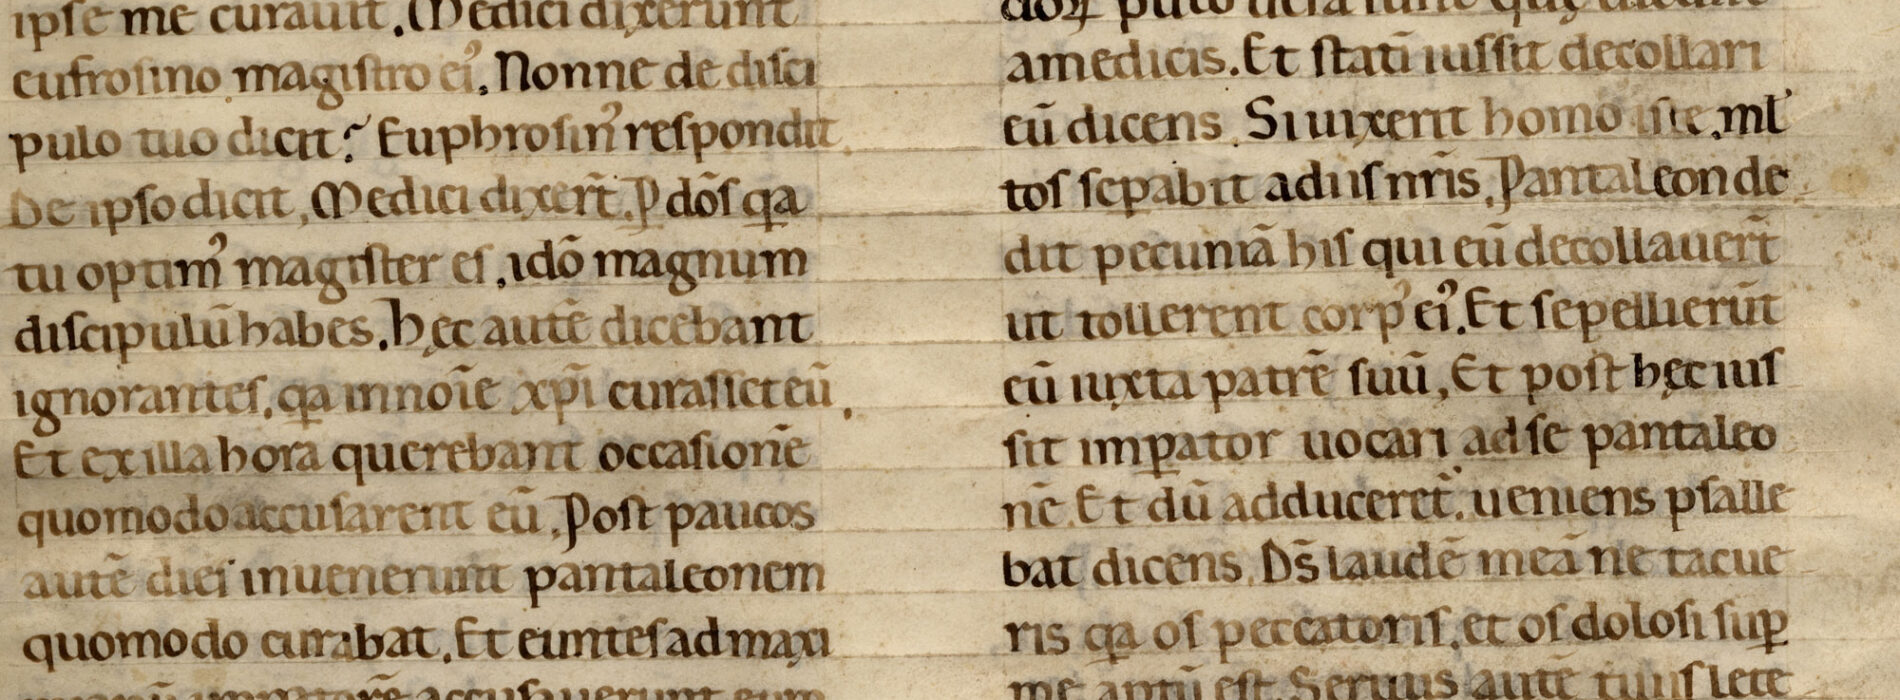 ipse me curauit. Medici dixerunt
eufrosino magistro ei᾽. Nonne de disci
pulo tuo dicit? Euphrosin᾽ respondit.
De ipso dicit. Medici dixer̄t. P dōs qa
tu optim᾽ magister es, idō magnum
discipulū habes. Hęc autē dicebant
ignorantes, qa in noīe xp̄i curasset eū.
Et ex illa hora querebant occasionē
quomodo accusarent eū. Post paucos
autē dies inuenerunt pantaleonem
quomodo curabat. Et euntes ad maxi
accusauerunt eum
puto uera sunt quę
a medicis. Et statī iussit decollari
eū dicens. Si uixerit homo iste, ml᾽
tos sepabit a diis nr̄is. Pantaleon de
dit pecuniā his qui eū decollauer̄t
ut tollerent corp᾽ ei᾽. Et sepellierūt
eū iuxta patrē suū, Et post hęc ius
sit impator uocari ad se pantaleo
nē. Et dū adduceret̄. ueniens psalle
bat dicens. Ds̄ laudē meā ne tacue
ris qa os peccatoris, et os dolosi sup
me aptū est. Seruus autē tuus lete